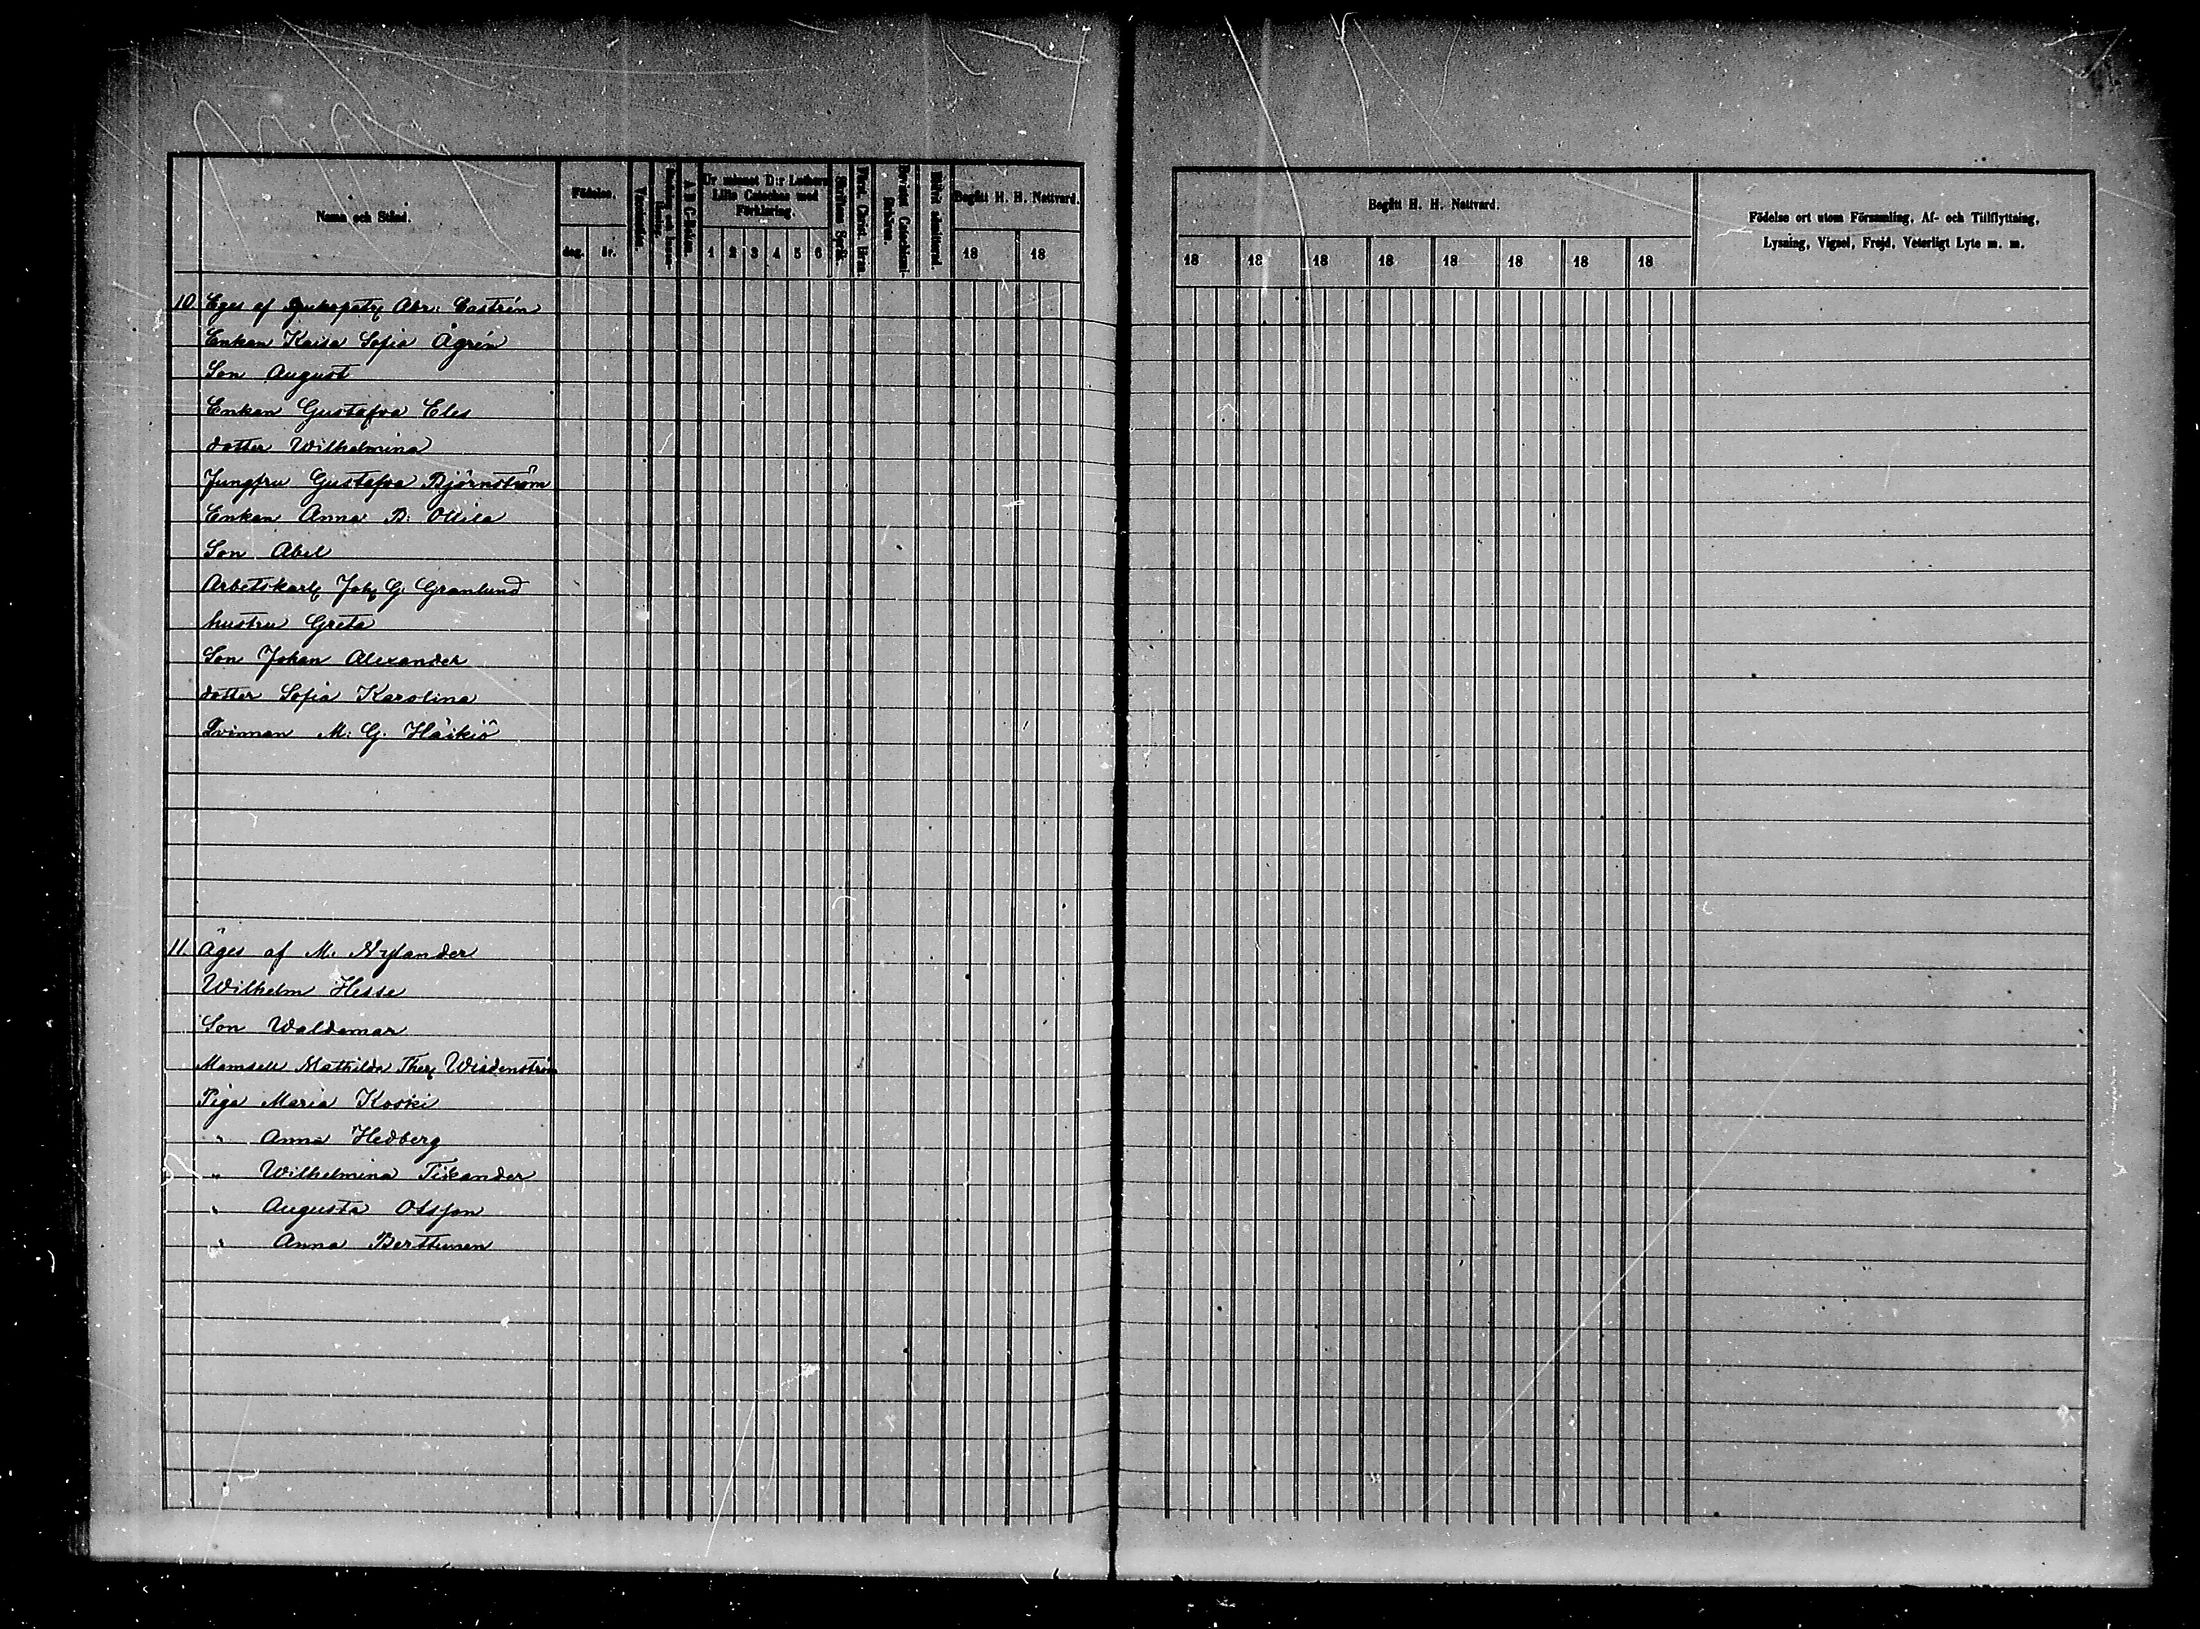 Namn och Stånd.
Födelse.
dag. år.
A B C-Boken.
Ur minnet D:r Luthers
Lilla Cateches med
Förklaring.
1 2 3 4 5 6
Begått H. H. Nattvard.
18 18
Begått H. H. Nattvard.
18 18 18 18 18 18 18 18
Födelse ort utom Församling, Af- och Tillflyttning,
Lysning, Vigsel, Frejd, Veterligt Lyte m. m.
10. Eges af Abr: Castrén
Enkan Kaisa Sofia Ågrén
Son August
Enkan Gustafva Eles
dotter Wilhelmina
Jungfru Gustafva Björnström
Enkan Anna B: Ollila
Son Abel
Arbetskarl Joh G: Granlund
hustru Greta
Son Johan Alexander
dotter Sofia Karolina
Qvinnan M: G. Häikiö
11. Äges af M. Nylander
Wilhelm Hesse
Son Waldemar
Mamsell Mathilda Ther Widenström
Piga Maria Koski
" Anna Hedberg
" Wilhelmina Tikander
" Augusta Olsson
" Anna Berttunen